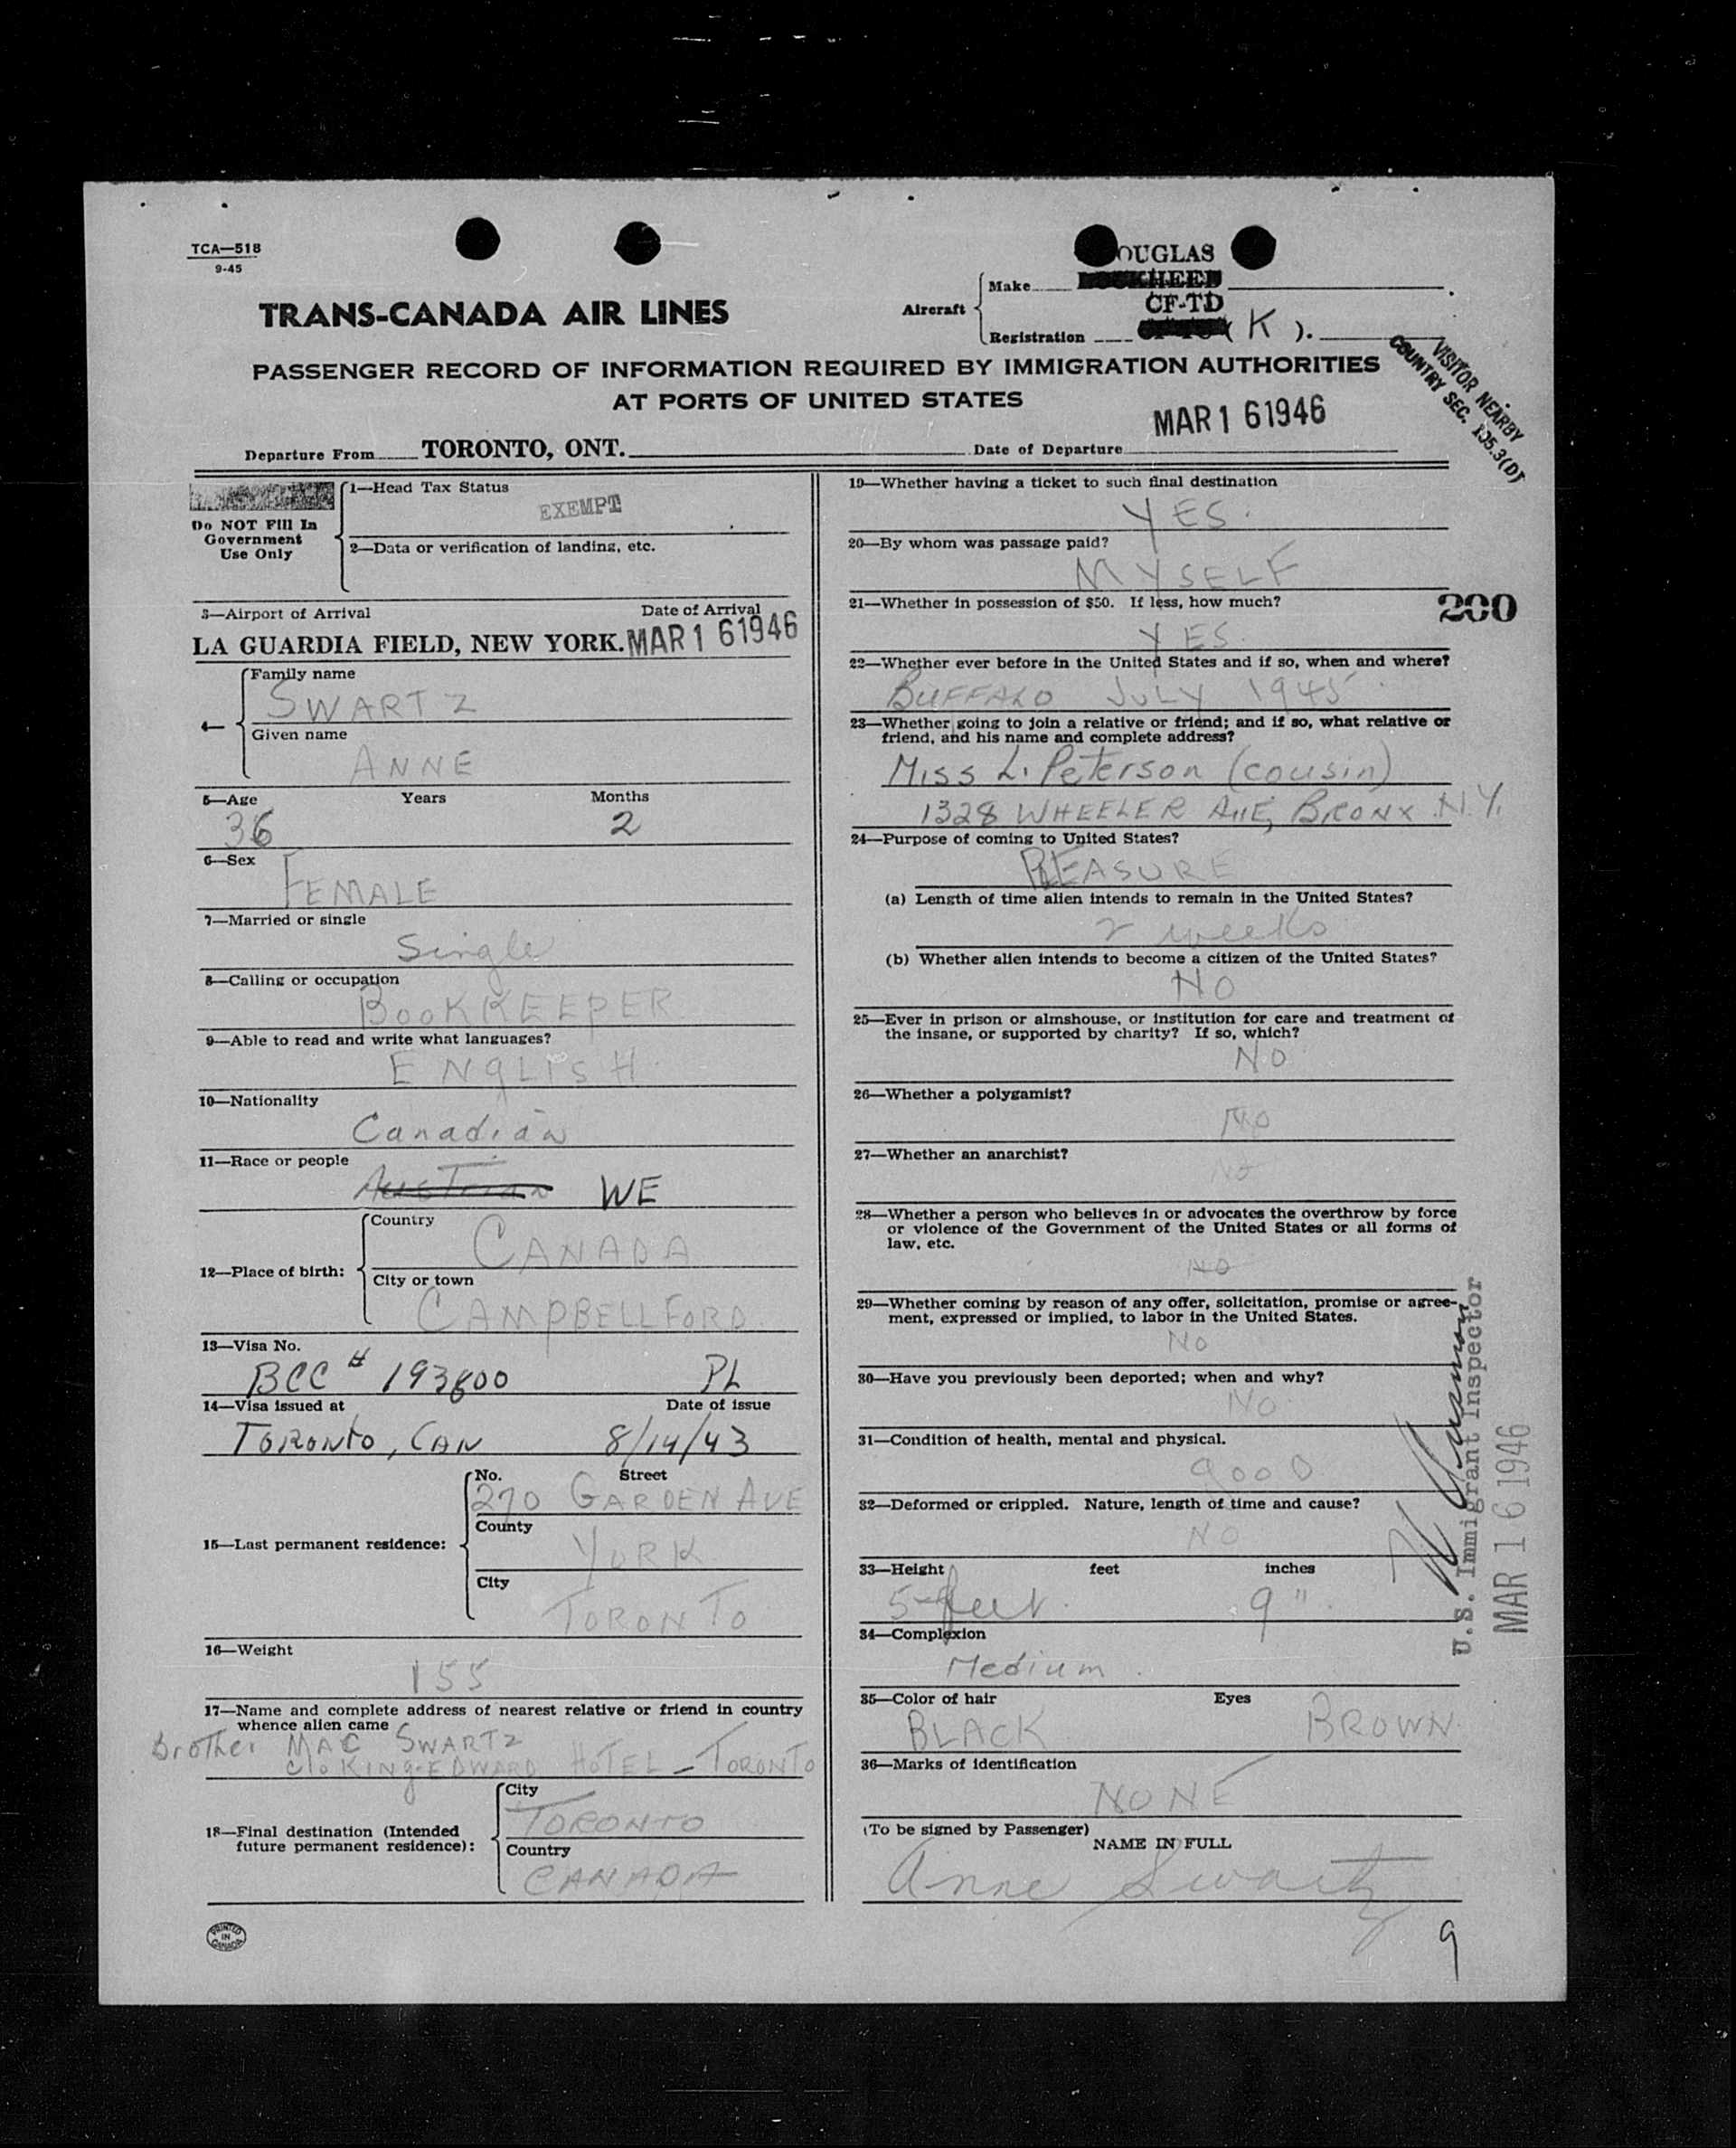 TCA—518
9-45
DOUGLAS
Make
CF-TD
Aircraft
Registration ( K ).
TRANS-CANADA AIR LINES
PASSENGER RECORD OF INFORMATION REQUIRED BY IMMIGRATION AUTHORITIES
AT PORTS OF UNITED STATES
VISITOR NEARBY
COUNTRY SEC. 135.3(D)
MAR 1 6 1946
Departure From TORONTO, ONT. Date of Departure
Do NOT Fill In
Government
Use Only
1—Head Tax Status
EXEMPT
2—Data or verification of landing, etc.
3—Airport of Arrival Date of Arrival
LA GUARDIA FIELD, NEW YORK. MAR 1 6 1946
4— Family name
SWARTZ
Given name
ANNE
5—Age Years Months
36 2
6—Sex
FEMALE
7—Married or single
Single
8—Calling or occupation
BOOKKEEPER
9—Able to read and write what languages?
ENGLISH
10—Nationality
Canadian
11—Race or people
Austrian WE
12—Place of birth:
Country
CANADA
City or town
CAMPBELLFORD
13—Visa No.
BCC # 193800 PL
14—Visa issued at Date of issue
TORONTO, CAN 8/14/43
15—Last permanent residence:
No. Street
270 GARDEN AVE
County
YORK
City
TORONTO
16—Weight
155
17—Name and complete address of nearest relative or friend in country
whence alien came
Brother MAC SWARTZ
c/o KING EDWARD HOTEL — TORONTO
18—Final destination (Intended
future permanent residence):
City
TORONTO
Country
CANADA
PRINTED
IN
CANADA
19—Whether having a ticket to such final destination
YES.
20—By whom was passage paid?
MYSELF
21—Whether in possession of $50. If less, how much?
YES.
200
22—Whether ever before in the United States and if so, when and where?
BUFFALO JULY 1945
23—Whether going to join a relative or friend; and if so, what relative or
friend, and his name and complete address?
MISS L. Peterson (cousin)
1328 WHEELER AVE, BRONX N.Y.
24—Purpose of coming to United States?
PLEASURE
(a) Length of time alien intends to remain in the United States?
2 weeks
(b) Whether alien intends to become a citizen of the United States?
NO
25—Ever in prison or almshouse, or institution for care and treatment of
the insane, or supported by charity? If so, which?
NO
26—Whether a polygamist?
NO
27—Whether an anarchist?
NO
28—Whether a person who believes in or advocates the overthrow by force
or violence of the Government of the United States or all forms of
law, etc.
NO
29—Whether coming by reason of any offer, solicitation, promise or agree-
ment, expressed or implied, to labor in the United States.
NO
30—Have you previously been deported; when and why?
NO.
31—Condition of health, mental and physical.
GOOD
32—Deformed or crippled. Nature, length of time and cause?
NO
33—Height feet inches
5 feet. 9".
34—Complexion
Medium.
35—Color of hair Eyes
BLACK BROWN.
36—Marks of identification
NONE
(To be signed by Passenger)
NAME IN FULL
Anne Swartz
9
U.S. Immigrant Inspector
MAR 1 6 1946